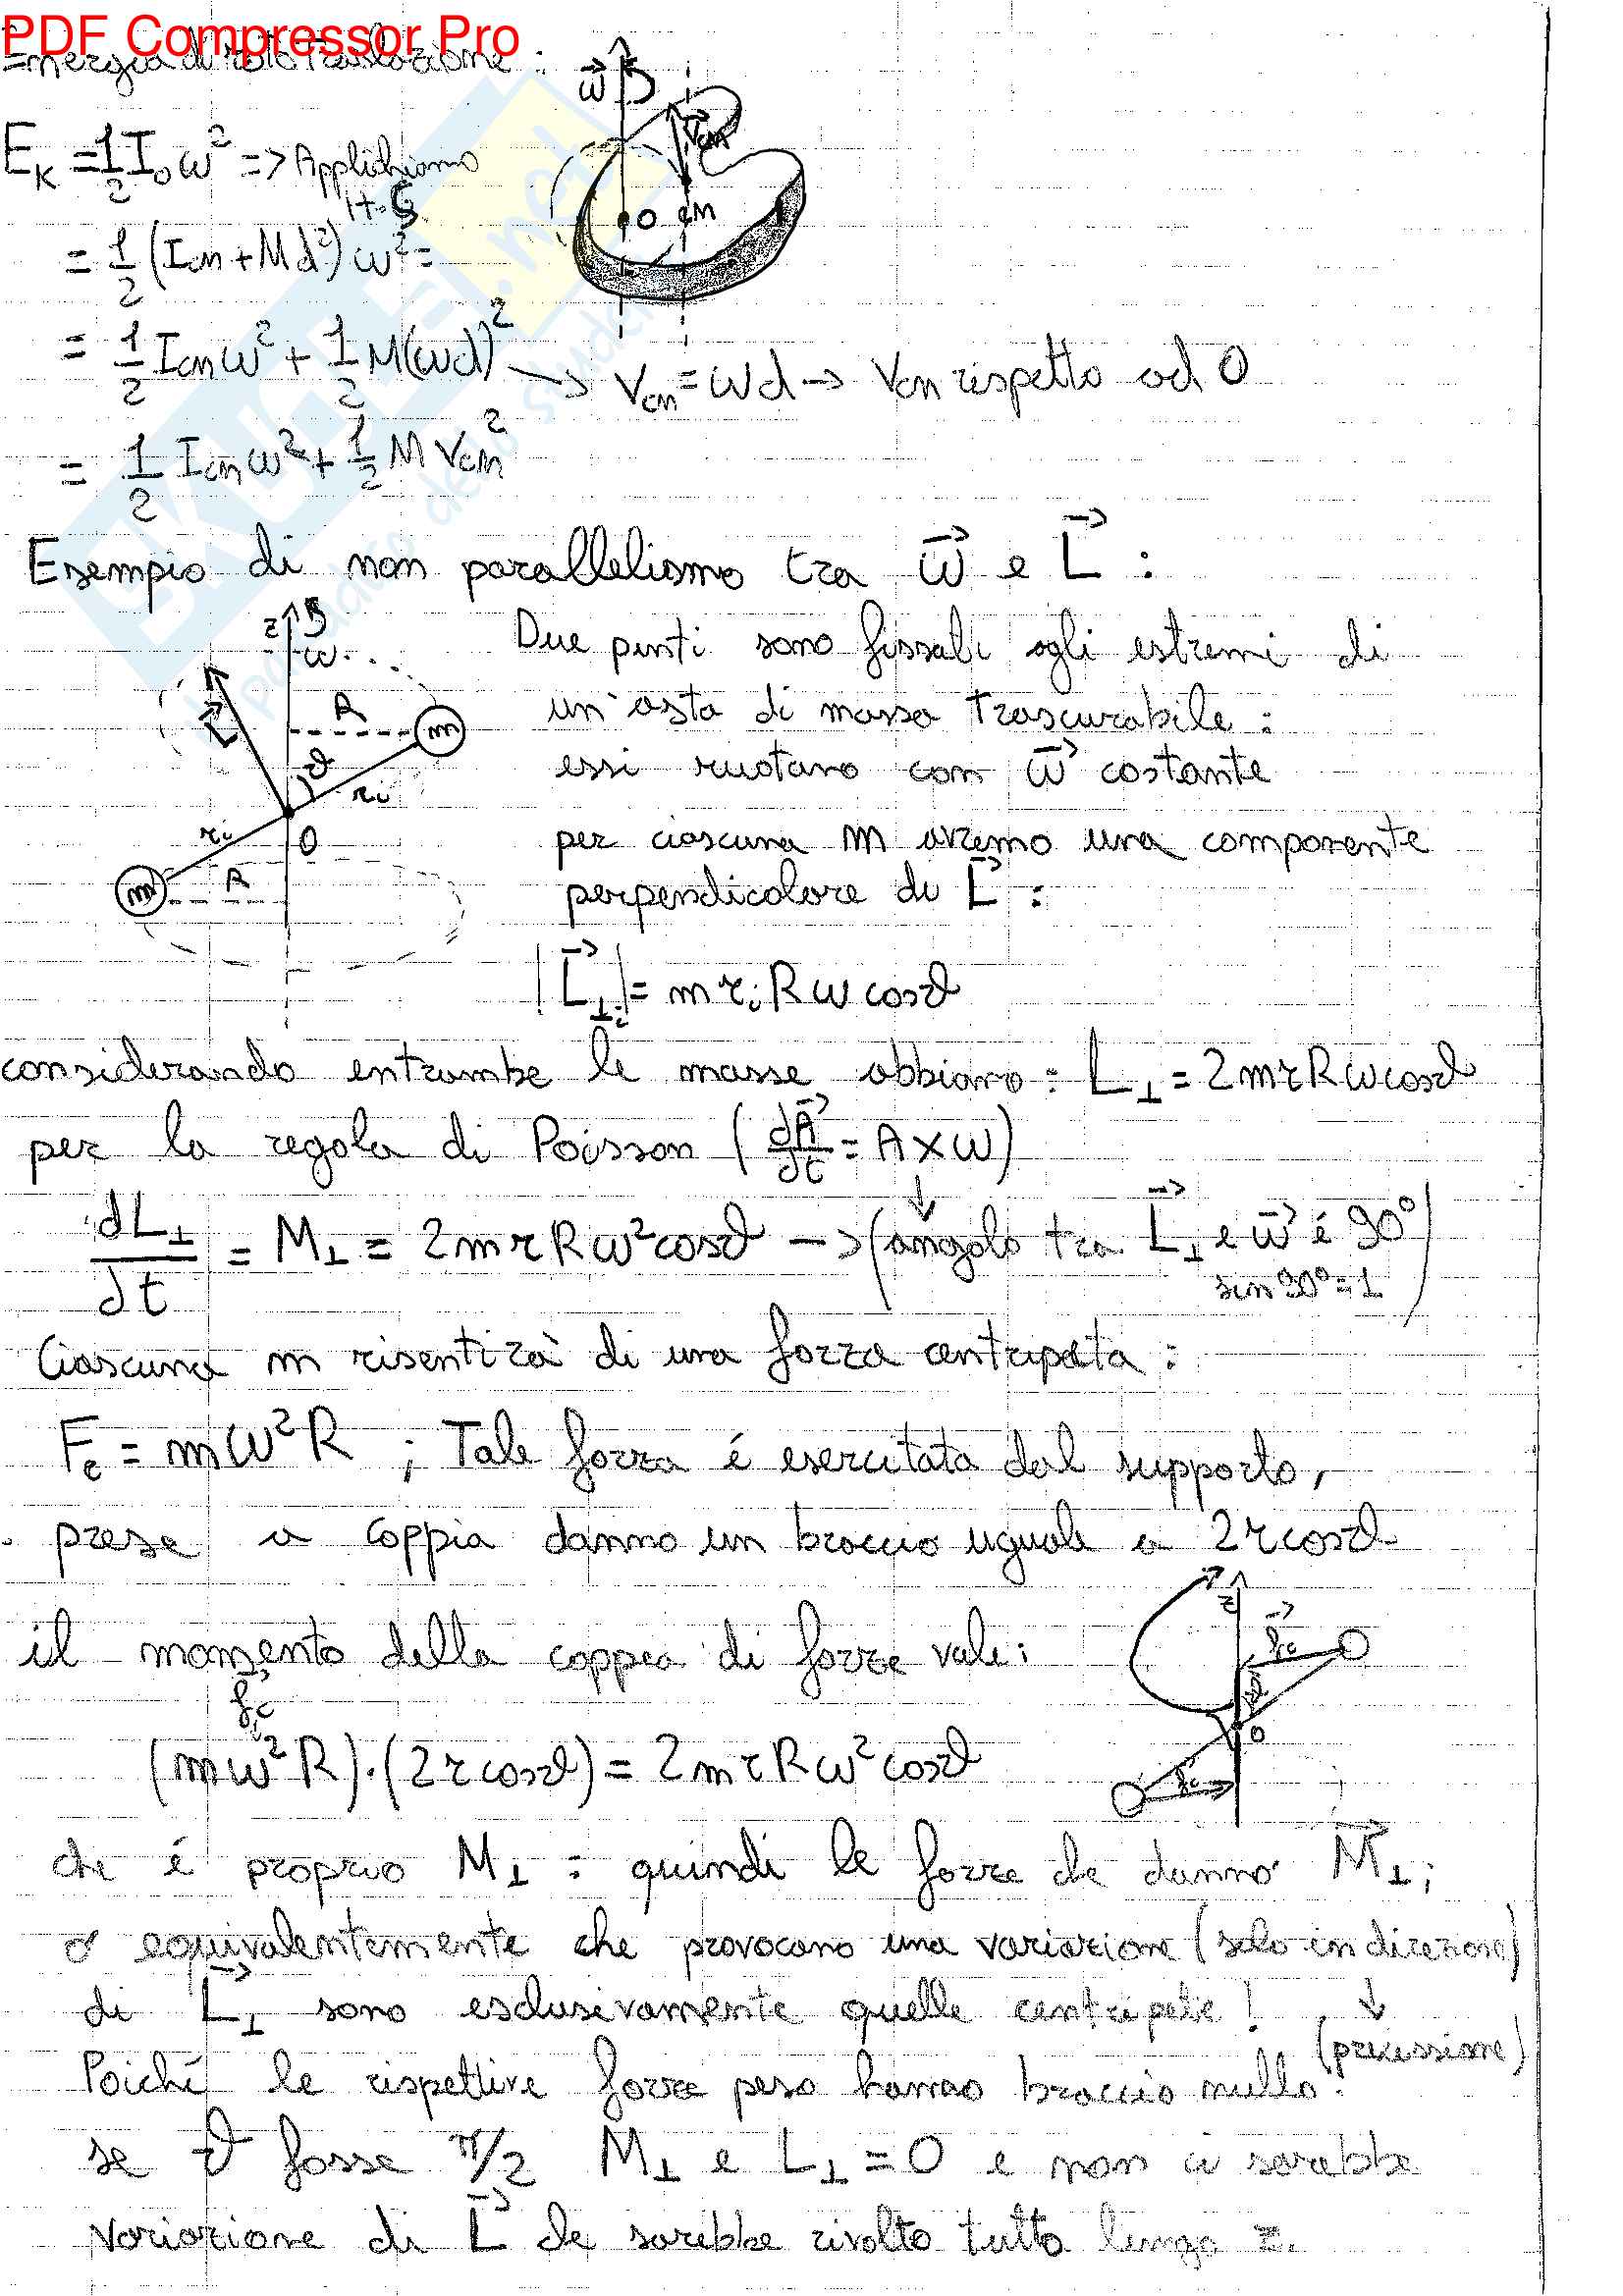 PDF Compressor Pro
Energia di roto traslazione :
E_K = 1/2 I_0 ω² => Applichiamo H-S
= 1/2 (I_cm + Md²) ω² =
= 1/2 I_cm ω² + 1/2 M(ωd)² → V_cm = ωd → V_cm rispetto ad O
= 1/2 I_cm ω² + 1/2 M V_cm²
ω V_cm O CM
Esempio di non parallelismo tra ω⃗ e L⃗ :
z ω L⃗ R m ϑ r_i r_i O R m
Due punti sono fissati agli estremi di
un'asta di massa trascurabile :
essi ruotano con ω⃗ costante
per ciascuna m avremo una componente
perpendicolare di L⃗ :
|L⃗⊥i| = m r_i R ω cosϑ
considerando entrambe le masse abbiamo : L⊥ = 2mrRωcosϑ
per la regola di Poisson (dA⃗/dt = A × ω)
dL⊥/dt = M⊥ = 2mrRω²cosϑ → (angolo tra L⃗⊥ e ω⃗ é 90°
sin 90° = 1)
Ciascuna m risentirà di una forza centripeta :
F_c = mω²R ; Tale forza é esercitata dal supporto,
prese a coppia danno un braccio uguale a 2rcosϑ
il momento della coppia di forze vale :
f_c
(mω²R)·(2rcosϑ) = 2mrRω²cosϑ
z f_c ϑ O f_c
che é proprio M⊥ : quindi le forze che danno M⃗⊥,
o equivalentemente che provocano una variazione (solo in direzione)
di L⃗⊥ sono esclusivamente quelle centripete! ↓
(precessione)
Poiché le rispettive forze peso hanno braccio nullo.
se ϑ fosse π/2 M⊥ e L⊥ = 0 e non ci sarebbe
variazione di L⃗ che sarebbe rivolto tutto lungo z.